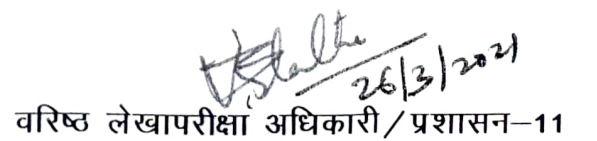 26/3/2021
वरिष्ठ लेखापरीक्षा अधिकारी/प्रशासन–11